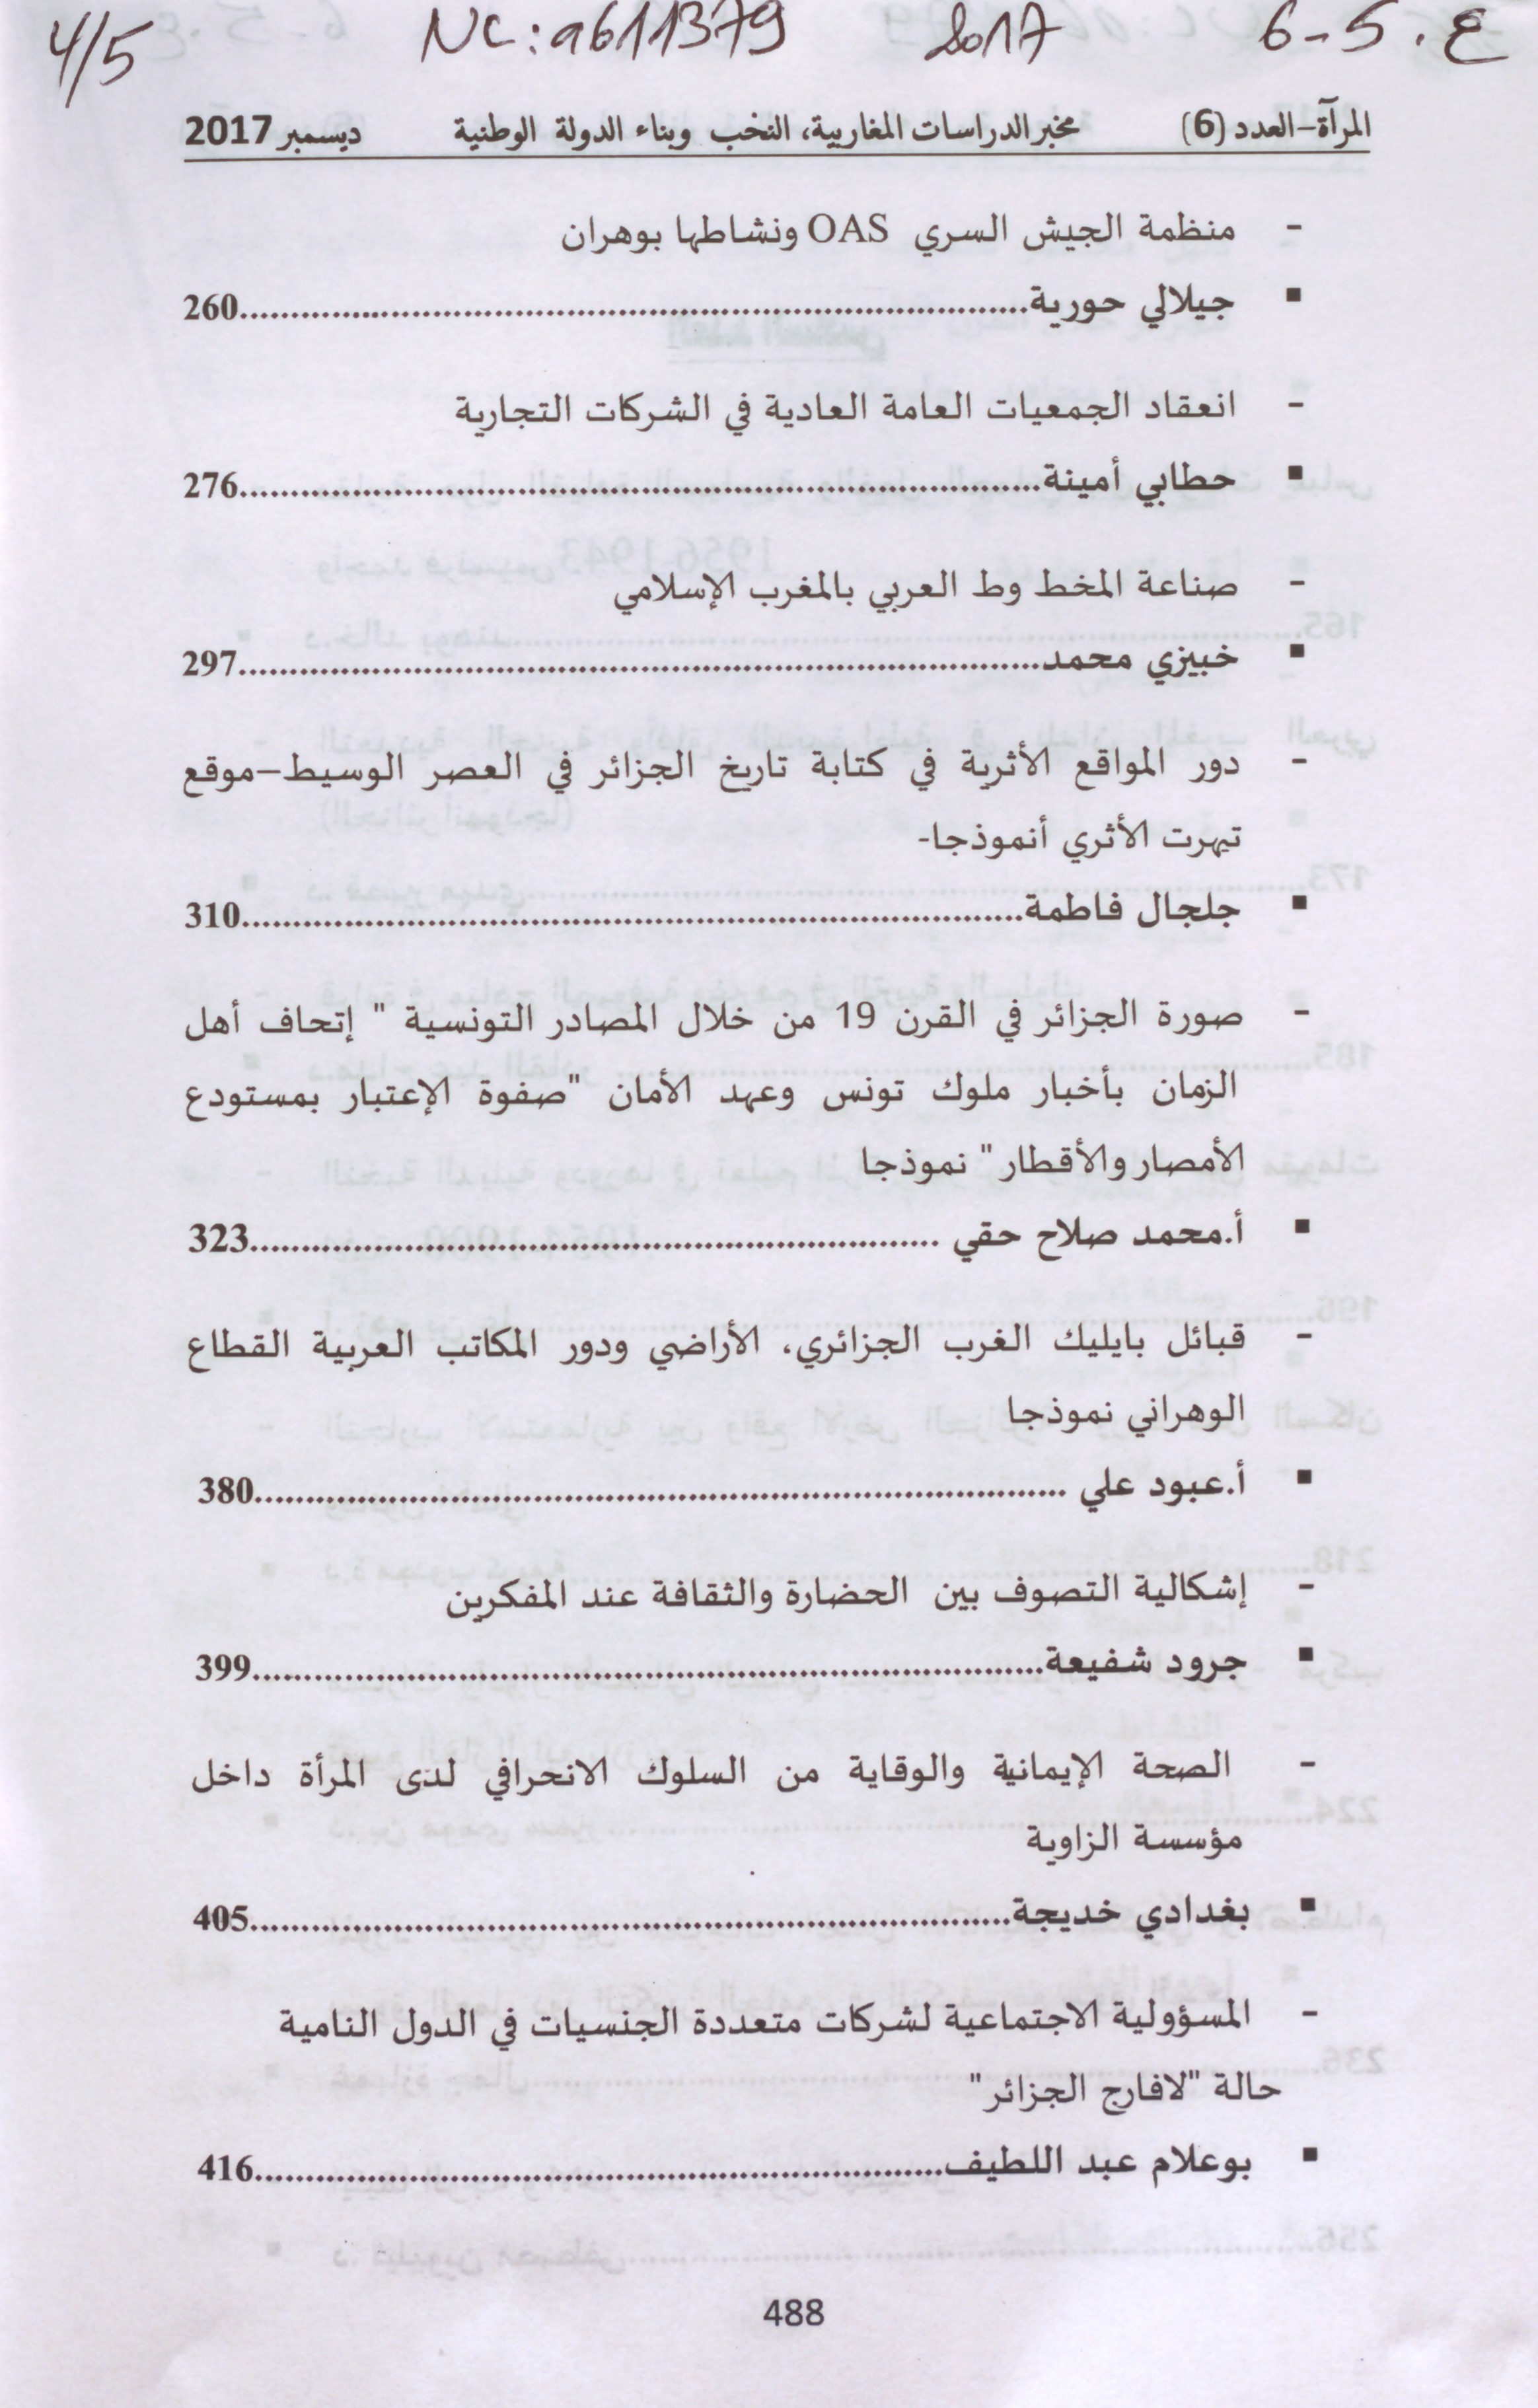 4/5 NC: a611379 2017 6-5.ع
المرآة-العدد (6) مخبر الدراسات المغاربية، النخب وبناء الدولة الوطنية ديسمبر 2017
- منظمة الجيش السري OAS ونشاطها بوهران
▪ جيلالي حورية..........................................................................260
- انعقاد الجمعيات العامة العادية في الشركات التجارية
▪ حطابي أمينة..........................................................................276
- صناعة المخط وط العربي بالمغرب الإسلامي
▪ خبيزي محمد..........................................................................297
- دور المواقع الأثرية في كتابة تاريخ الجزائر في العصر الوسيط-موقع
تيهرت الأثري أنموذجا-
▪ جلجال فاطمة..........................................................................310
- صورة الجزائر في القرن 19 من خلال المصادر التونسية " إتحاف أهل
الزمان بأخبار ملوك تونس وعهد الأمان "صفوة الإعتبار بمستودع
الأمصار والأقطار" نموذجا
▪ أ.محمد صلاح حقي ..........................................................................323
- قبائل بايليك الغرب الجزائري، الأراضي ودور المكاتب العربية القطاع
الوهراني نموذجا
▪ أ.عبود علي ..........................................................................380
- إشكالية التصوف بين الحضارة والثقافة عند المفكرين
▪ جرود شفيعة..........................................................................399
- الصحة الإيمانية والوقاية من السلوك الانحرافي لدى المرأة داخل
مؤسسة الزاوية
▪ بغدادي خديجة..........................................................................405
- المسؤولية الاجتماعية لشركات متعددة الجنسيات في الدول النامية
حالة "لافارج الجزائر"
▪ بوعلام عبد اللطيف..........................................................................416
488